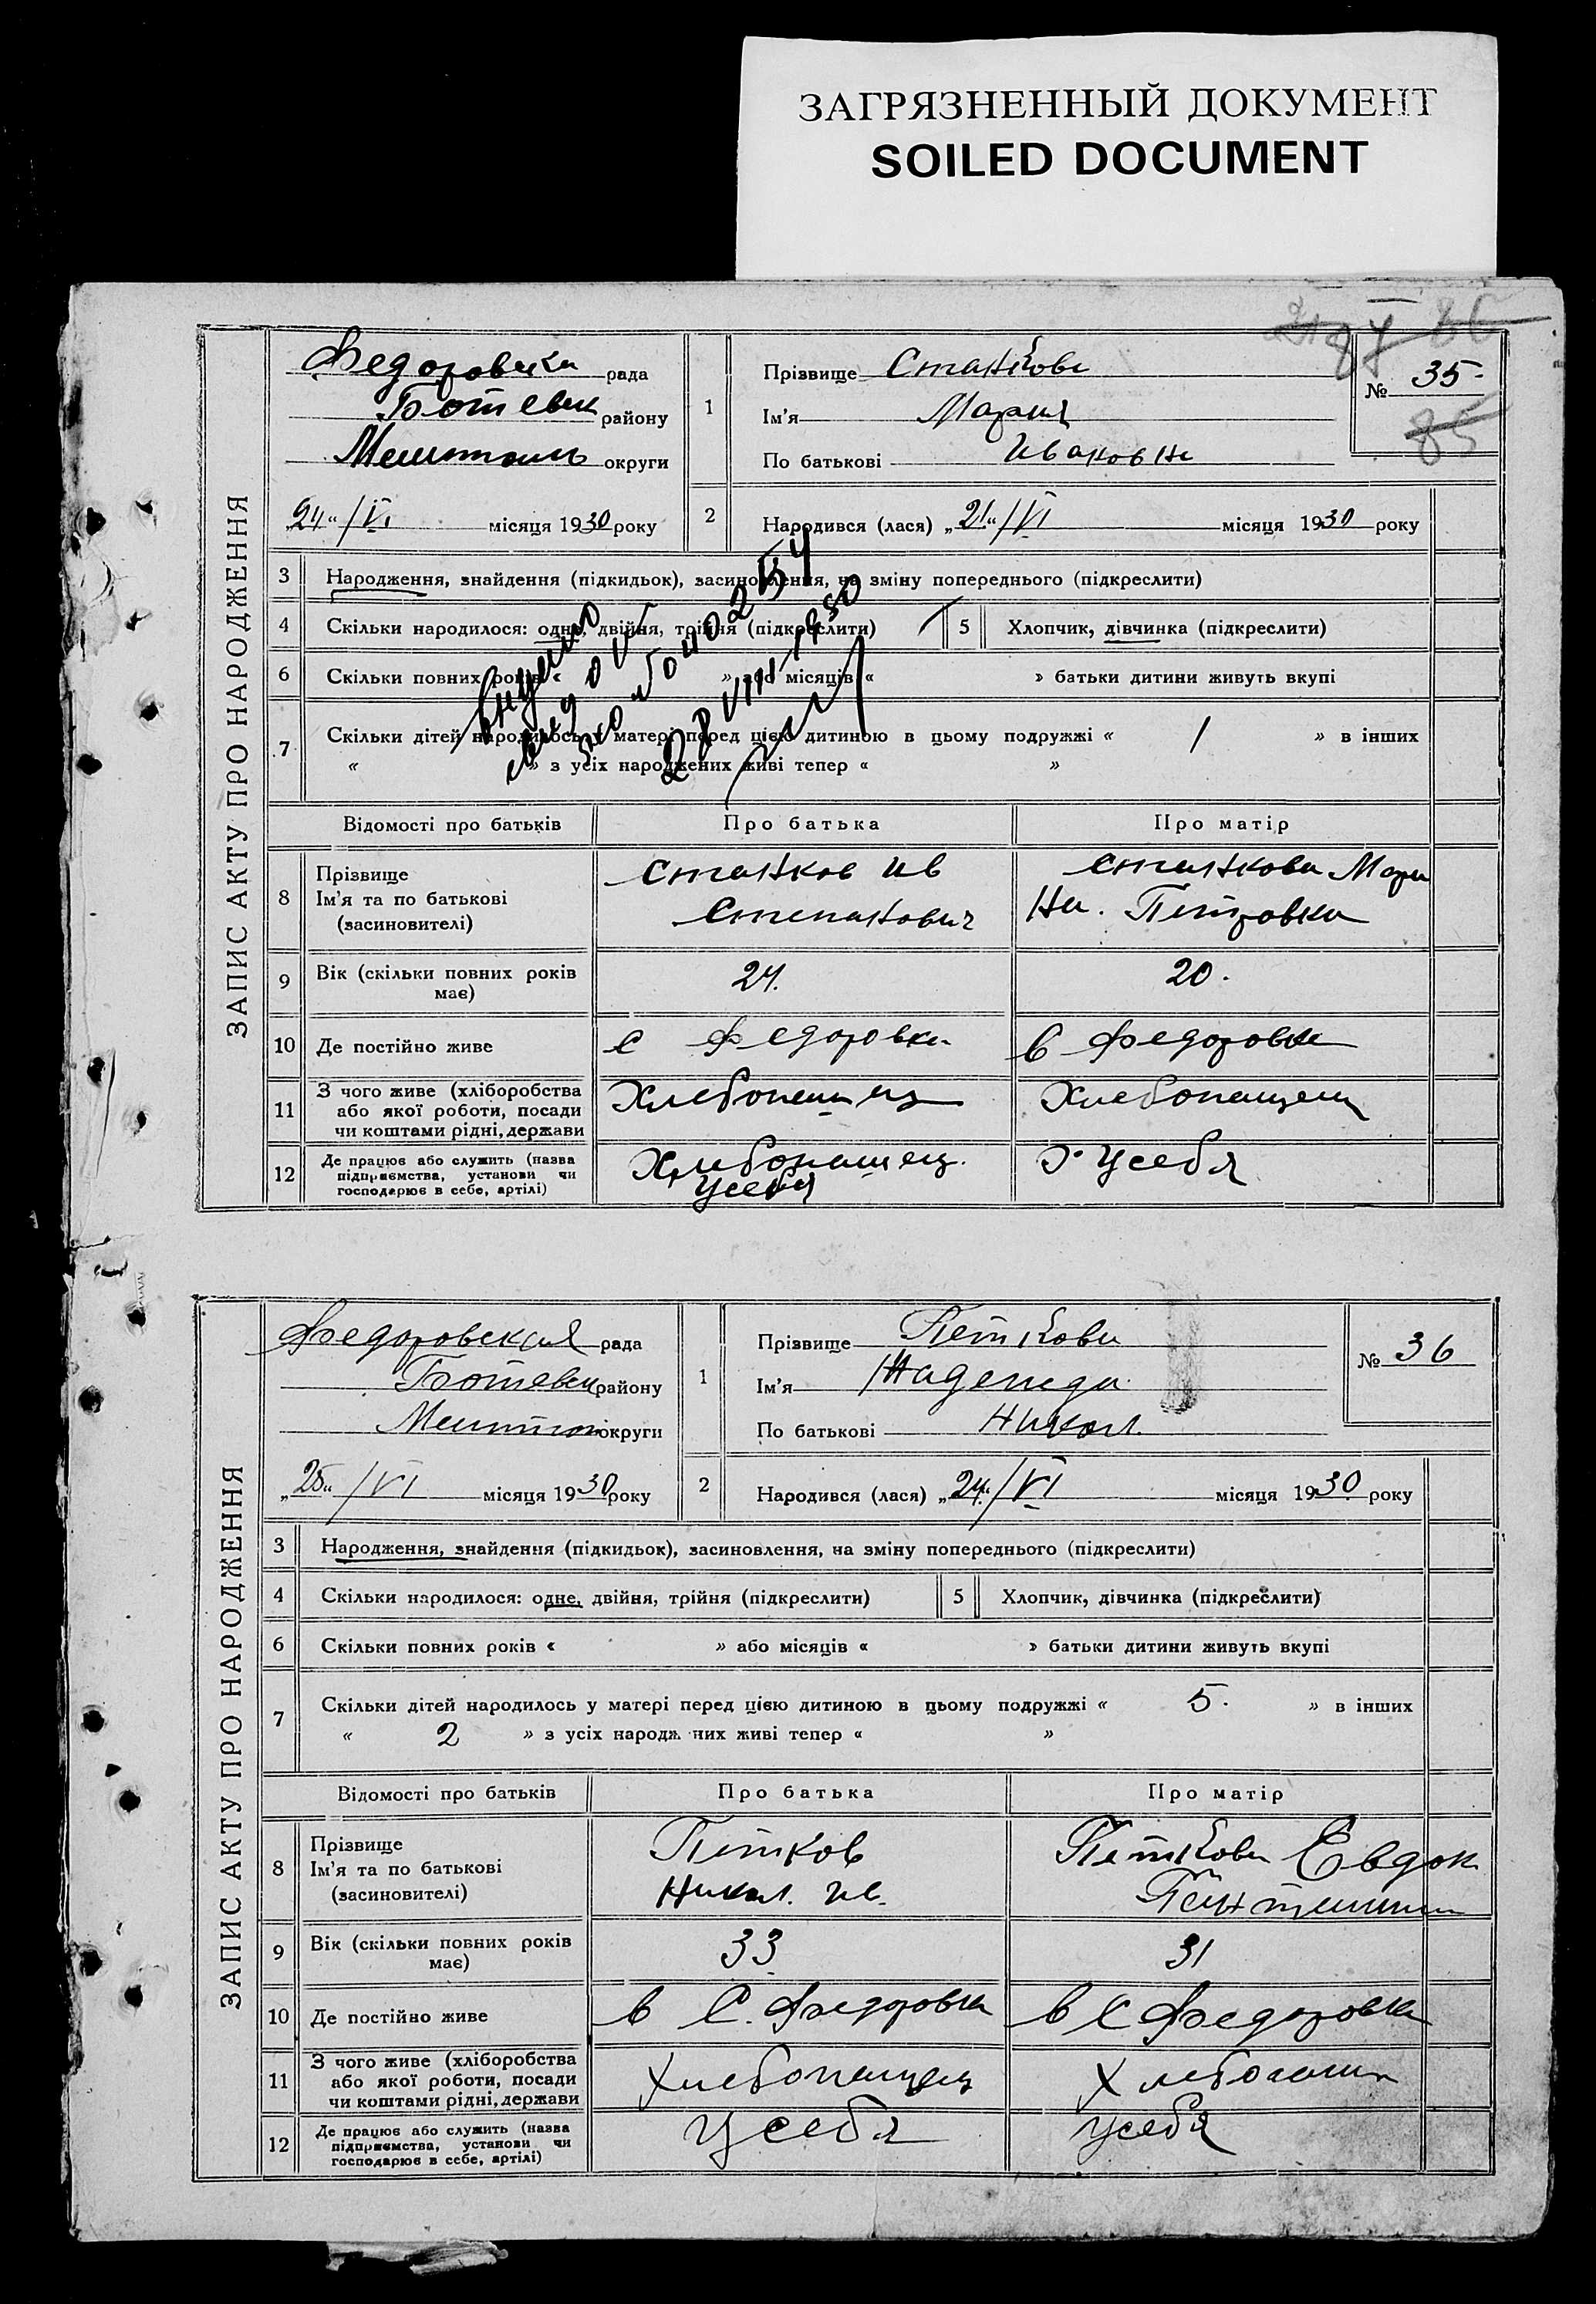 ЗАГРЯЗНЕННЫЙ ДОКУМЕНТ
SOILED DOCUMENT
ЗАПИС АКТУ ПРО НАРОДЖЕННЯ
рада
Ботевск району
округи
24 /VI місяця 1930 року
1
Прізвище Станкова
Ім'я Мария
По батькові
№ 35
85
2
Народився (лася) „21" /VI місяця 1930 року
3 Народження, знайдення (підкидьок), засиновлення, на зміну попереднього (підкреслити)
4 Скільки народилося: одне, двійня, трійня (підкреслити)
5 Хлопчик, дівчинка (підкреслити)
6 Скільки повних років « » або місяців « » батьки дитини живуть вкупі
7 Скільки дітей народилось у матері перед цією дитиною в цьому подружжі « 1 » в інших
« » з усіх народжених живі тепер « »
Відомості про батьків Про батька Про матір
8 Прізвище
Ім'я та по батькові
(засиновителі)
Станков Ив
Степанович
Станкова Мари
на. Петровна
9 Вік (скільки повних років
має)
24. 20.
10 Де постійно живе с Федоровка в Федоровка
11 З чого живе (хліборобства
або якої роботи, посади
чи коштами рідні, держави
Хлебопашец Хлебопашец
12 Де працює або служить (назва
підприємства, установи чи
господарює в себе, артілі)
Хлебопашец.
усебя
усебя
ЗАПИС АКТУ ПРО НАРОДЖЕННЯ
Федоровская рада
Ботевск району
округи
„25" /VI місяця 1930 року
1
Прізвище Петкова
Ім'я Надежда
По батькові Никол.
№ 36
2
Народився (лася) „24" /VI місяця 1930 року
3 Народження, знайдення (підкидьок), засиновлення, на зміну попереднього (підкреслити)
4 Скільки народилося: одне, двійня, трійня (підкреслити)
5 Хлопчик, дівчинка (підкреслити)
6 Скільки повних років « » або місяців « » батьки дитини живуть вкупі
7 Скільки дітей народилось у матері перед цією дитиною в цьому подружжі « 5. » в інших
« 2 » з усіх народж них живі тепер « »
Відомості про батьків Про батька Про матір
8 Прізвище
Ім'я та по батькові
(засиновителі)
Петков
Никол. Ив.
Петкова Евдок
9 Вік (скільки повних років
має)
33 31
10 Де постійно живе в С. Федоровка в С Федоровка
11 З чого живе (хліборобства
або якої роботи, посади
чи коштами рідні, держави
Хлебопашец
12 Де працює або служить (назва
підприємства, установи чи
господарює в себе, артілі)
усебя усебя